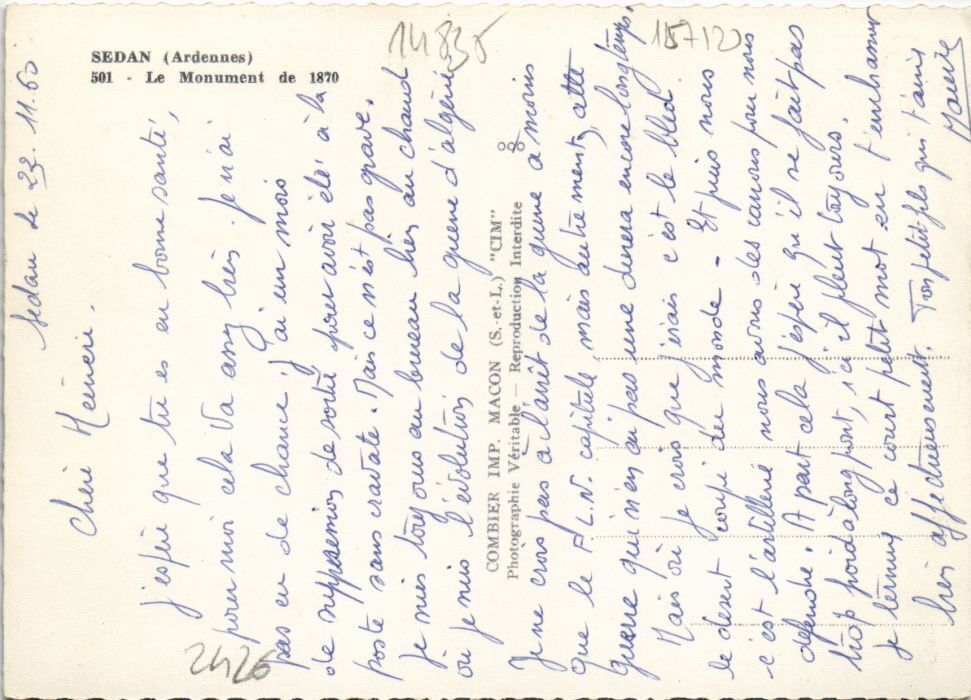 SEDAN (Ardennes)
501 - Le Monument de 1870
14835
157120
2426
COMBIER IMP. MACON (S.-et-L.) "CIM"
Photographie Véritable — Reproduction Interdite
Sedan le 23. 11. 60
Chéri
j'espère que tu es en bonne santé,
pour moi cela va assez bien. Je n'ai
pas eu de chance, j'ai eu un mois
de suppression de sortie pour avoir été à la
poste sans cravate. Mais ce n'est pas grave.
Je suis toujours au bureau bien au chaud
où je suis l'évolution de la guerre d'algérie
Je ne crois pas à l'arrêt de la guerre à moins
que le F.L.N. capitule mais autrement, cette
guerre qui n'en ai pas une durera encore longtemps.
Mais où je crois que j'irais c'est le bled
le desert coupé du monde - Et puis nous
c'est l'artillerie nous avons des canons pour nous
defendre. A part cela j'espère qu'il ne fait pas
trop froid à longpont, ici il pleut toujours.
je termine ce court petit mot en t'embrassant
bien affectueusement. Ton petit fils qui t'aime